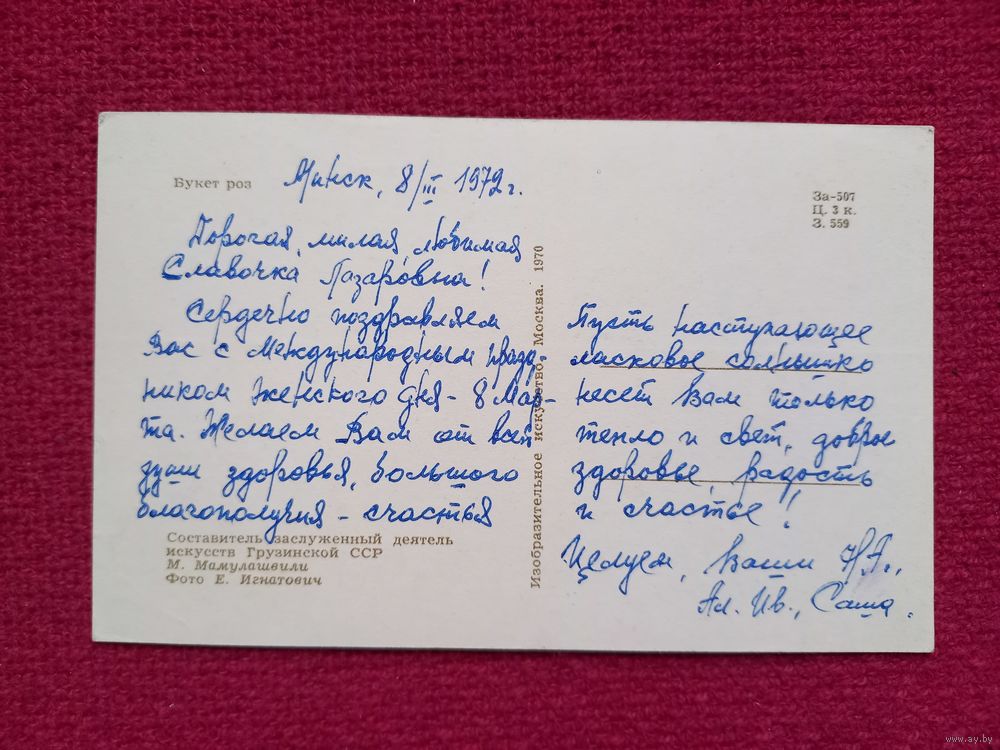 Букет роз
Минск, 8/III 1972 г.
За-507
Ц. 3 к.
З. 559
Дорогая, милая, любимая
Славочка Лазаровна!
Сердечно поздравляем
Вас с Международным празд-
ником Женского дня - 8 Мар-
та. Желаем Вам от всей
души здоровья, большого
благополучия - счастья
Составитель заслуженный деятель
искусств Грузинской ССР
М. Мамулашвили
Фото Е. Игнатович
Изобразительное искусство. Москва. 1970
Пусть наступающее
ласковое солнышко
несет Вам только
тепло и свет, доброе
здоровье, радость
и счастье!
Целуем, Ваши Н.А.,
Ал. Ив., Саша.
www.ay.by